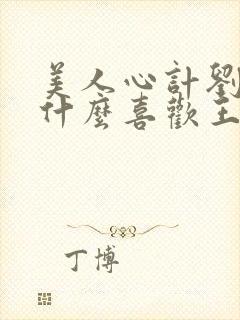 美人心計劉
什麼喜歡王
丁博